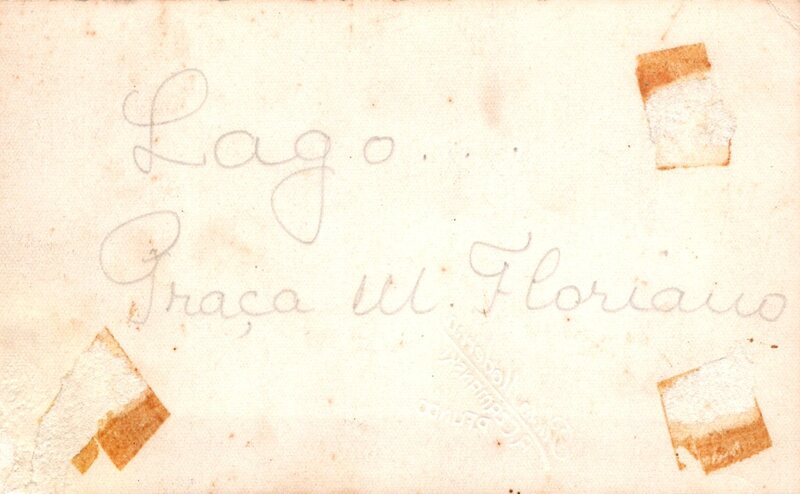 Lago...
Praça M Floriano